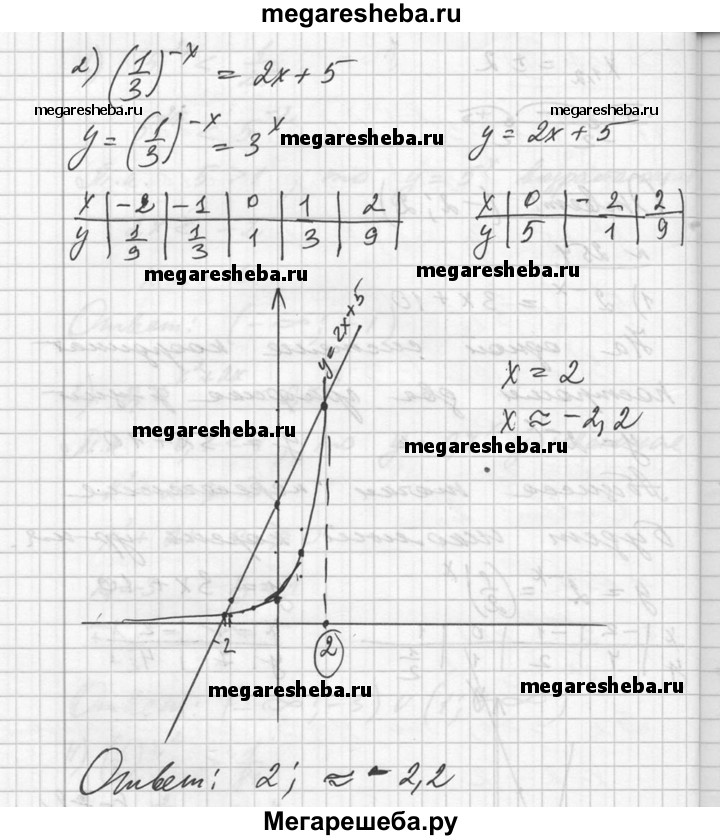 megaresheba.ru
2) (1/3)^-x = 2x + 5
megaresheba.ru megaresheba.ru
y = (1/3)^-x = 3^x megaresheba.ru y = 2x + 5
x | -2 | -1 | 0 | 1 | 2 |
y | 1/9 | 1/3 | 1 | 3 | 9 |
x | 0 | -2 | 2
y | 5 | 1 | 9 |
megaresheba.ru megaresheba.ru
y = 2x+5
x = 2
x ≈ -2,2
megaresheba.ru megaresheba.ru
-2 2
megaresheba.ru megaresheba.ru
Ответ: 2; ≈ -2,2
Мегарешеба.ру